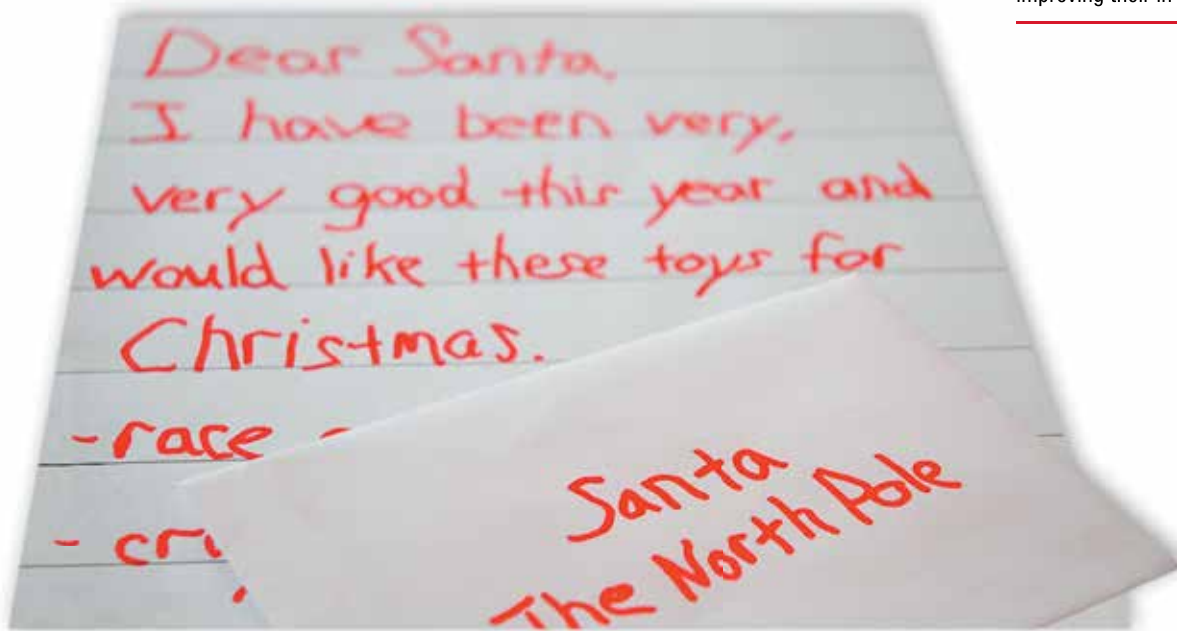 improving their in
Dear Santa,
I have been very,
very good this year and
would like these toys for
Christmas.
- race
-
Santa
The North Pole